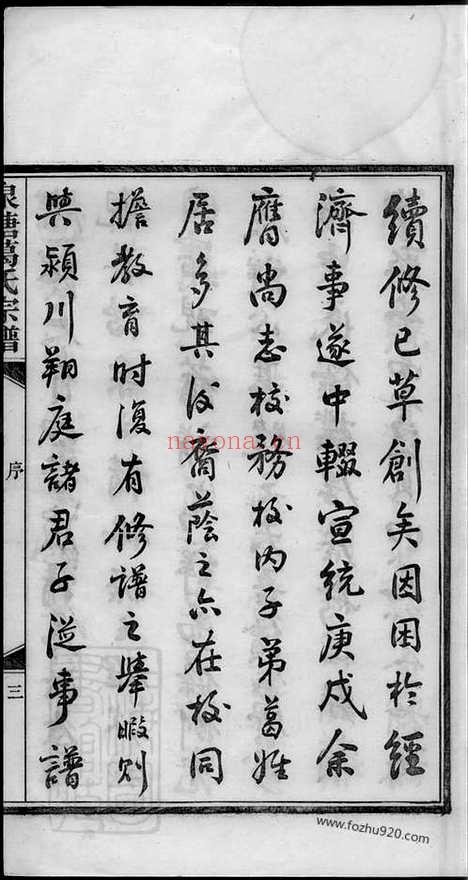 續修已草創矣因困於經
濟事遂中輟宣統庚戌余
膺尚志校務校內子弟葛姓
居多其後裔蔭之亦在校同
擔教育時復有修譜之舉暇則
與潁川翔庭諸君子從事譜
泉塘葛氏宗譜
序
三
nagona.cn
www.fozhu920.com